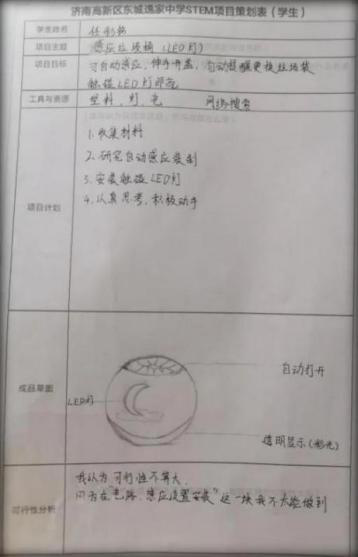 济南高新区东城逸家中学STEM项目策划表（学生）
学生姓名
项目主题 感应垃圾桶（LED灯）
项目目标 可自动感应，伸手开盖，自动提醒更换垃圾袋
触碰LED灯即亮
工具与资源 塑料、灯、电 网络搜索
项目计划
1.收集材料
2.研究自动感应装制
3.安装触碰LED灯
4.认真思考，积极动手
成品草图
自动打开
LED灯
透明显示（彩光）
可行性分析
我认为可行性不算大，
因为在“电路、感应设置安装”这一块我不太能做到